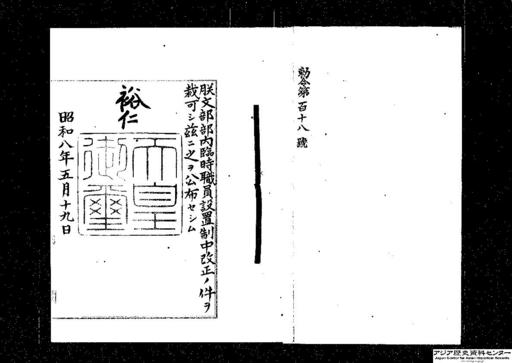 勅令第百十八號
朕文部部内臨時職員設置制中改正ノ件ヲ
裁可シ茲ニ之ヲ公布セシム
裕仁
天皇御璽
昭和八年五月十九日
アジア歴史資料センター
Japan Center for Asian Historical Records